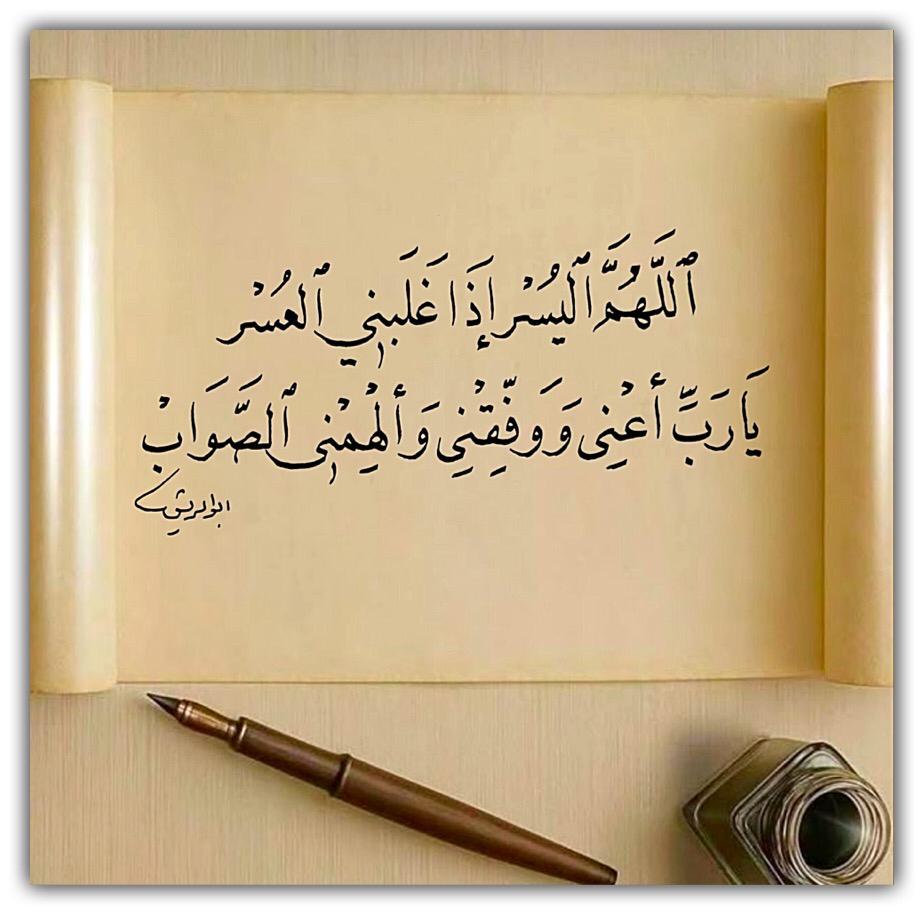 ٱللَّهُمَّ ٱليُسْر إِذَا غَلَبَنِي ٱلعُسْر
يَا رَبِّ أَعْنِي وَوَفِّقْنِي وَأَلْهِمْنِي ٱلصَّوَابْ